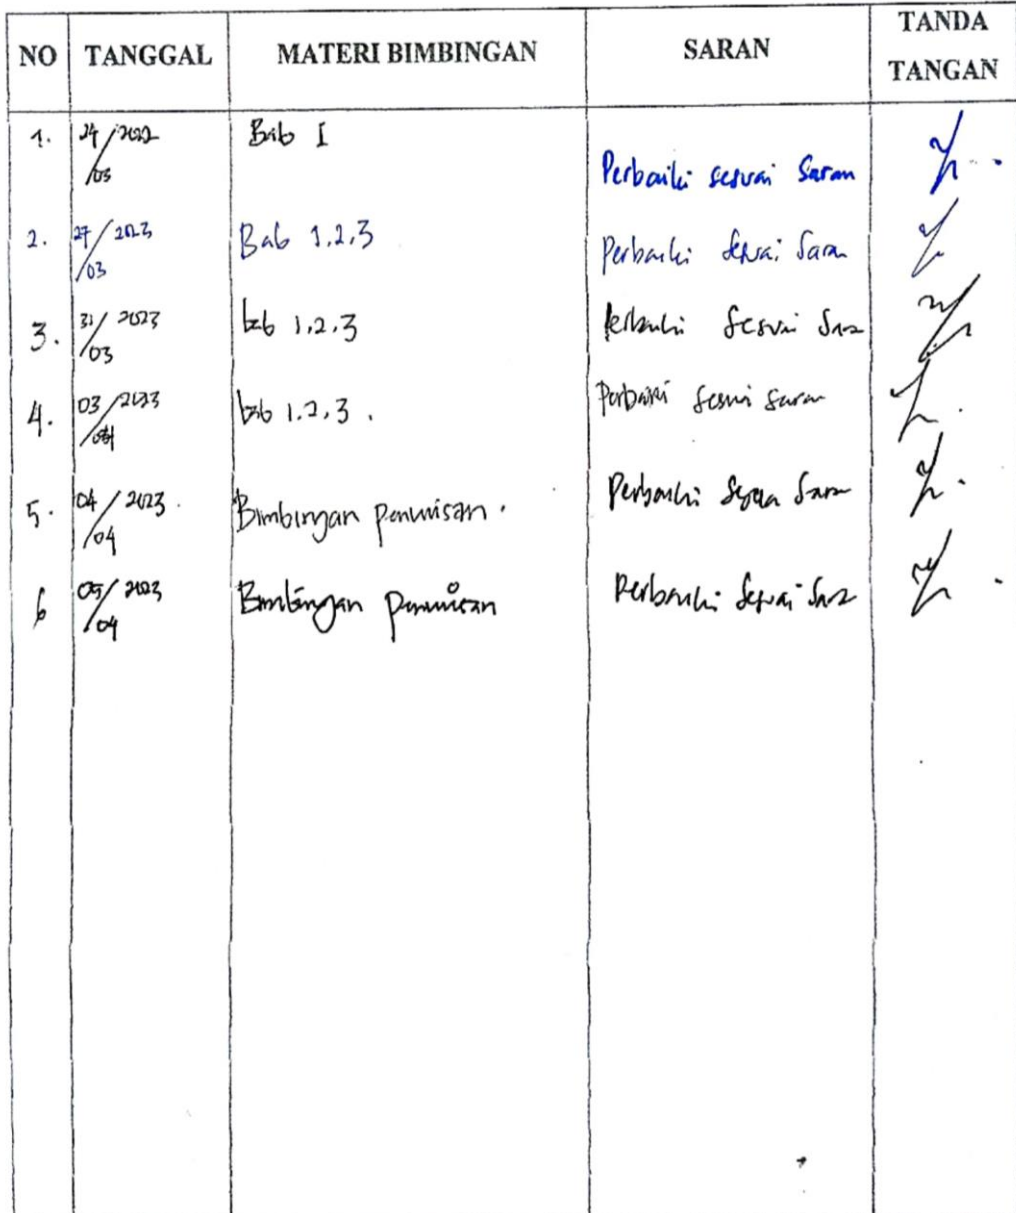 NO TANGGAL MATERI BIMBINGAN SARAN TANDA TANGAN
1. 24/03 2022 Bab I Perbaiki sesuai Saran
2. 27/03 2023 Bab 1.2.3 Perbaiki sesuai Saran
3. 31/03 2023 bab 1.2.3 Perbaiki sesuai Saran
4. 03/04 2023 bab 1.2.3. Perbaiki sesuai saran
5. 04/04 2023 Bimbingan penulisan. Perbaiki sesuai Saran
6 05/04 2023 Bimbingan penulisan Perbaiki sesuai Saran